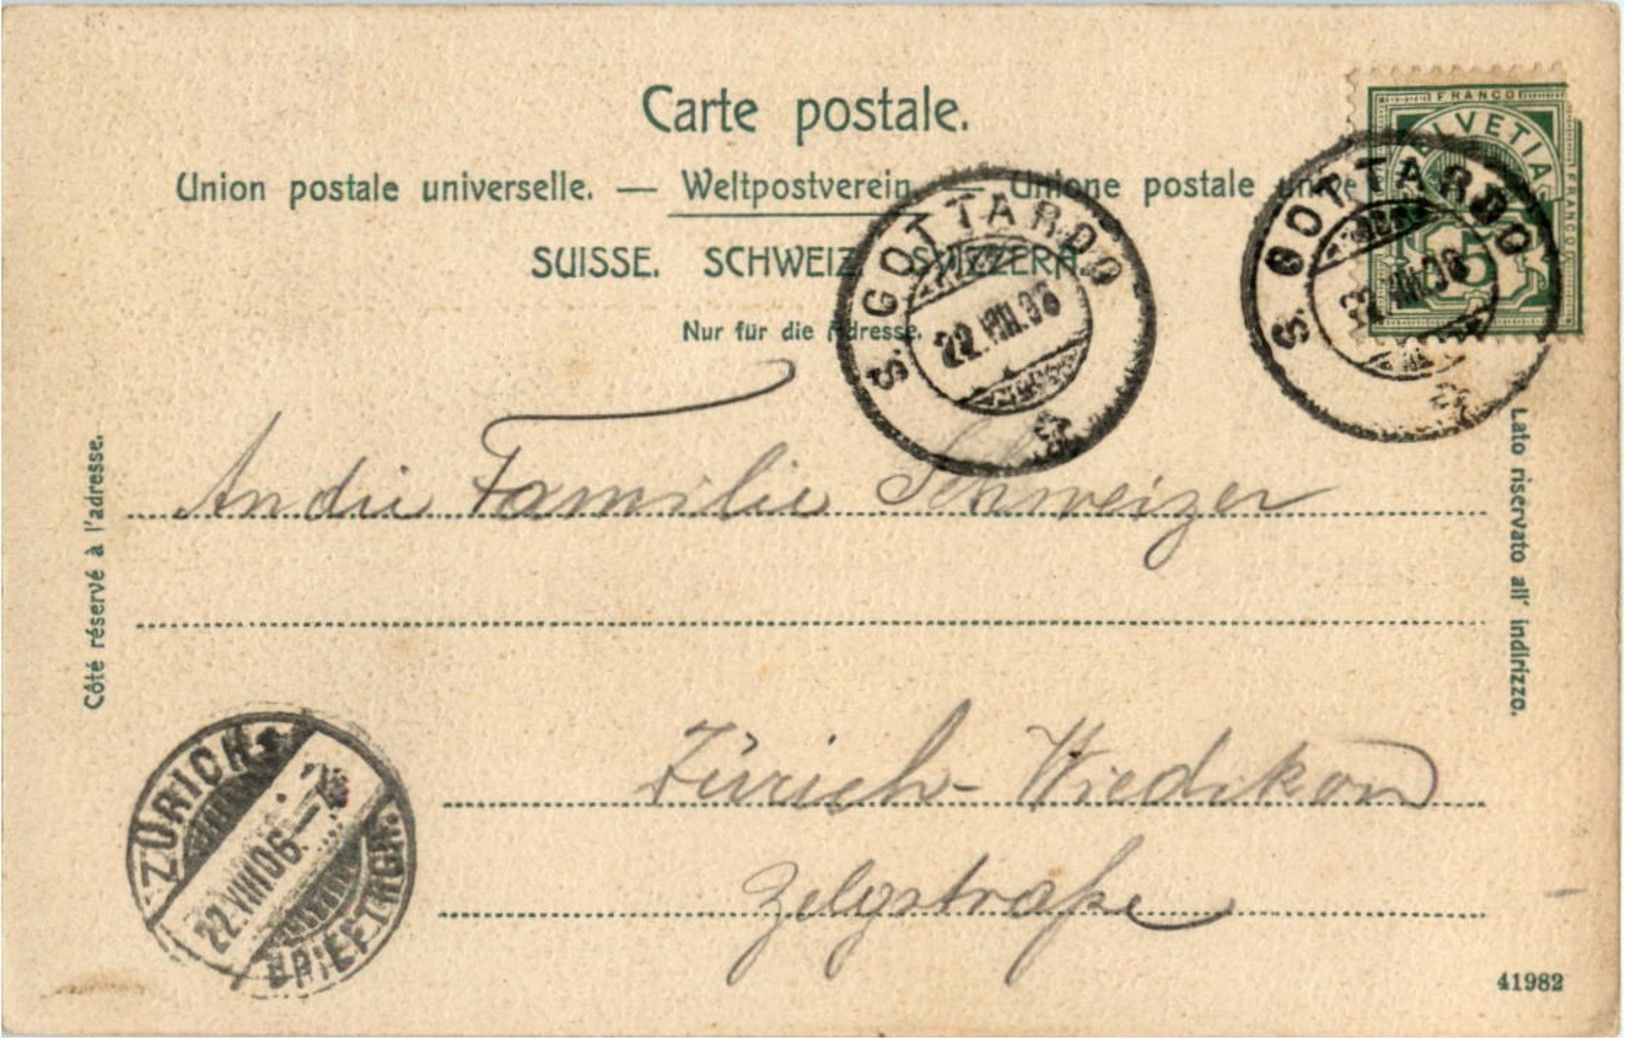 Carte postale.
FRANCO
HELVETIA
FRANCO
5
Union postale universelle. — Weltpostverein. — Unione postale
SUISSE. SCHWEIZ. SVIZZERA.
Nur für die Adresse.
S. GOTTARDO
22.VIII.06
S. GOTTARDO
22.VIII.06
An die Familie Schweizer
Côté réservé à l'adresse.
Lato riscervato all' indirizzo.
Zürich-Wiedikon
Zelgstraße
ZÜRICH
22.VIII.06.
BRIEFTRÄGER
41982